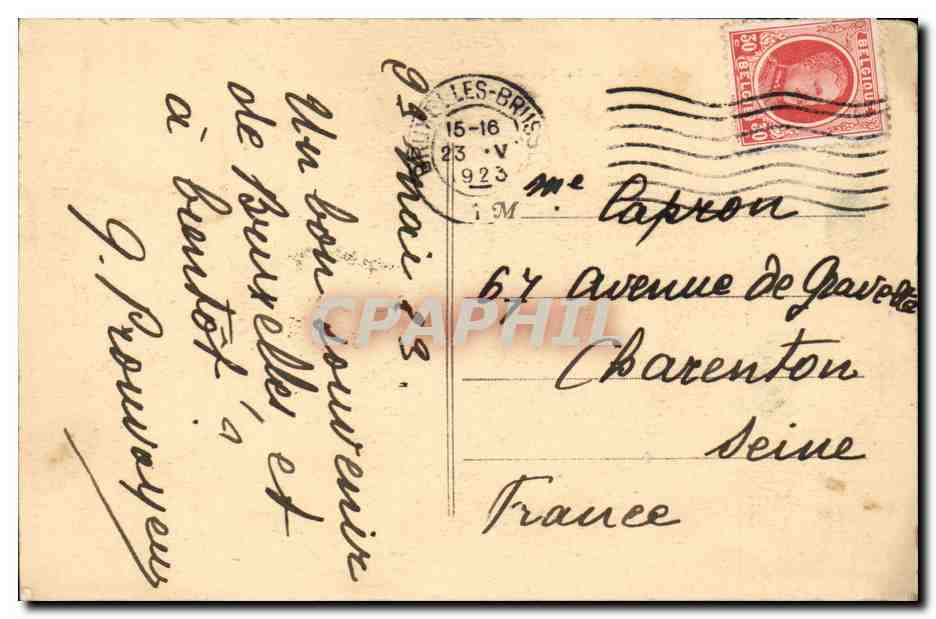 23 mai 23.
Un bon souvenir
de Bruxelles et
à bientôt.
BRUXELLES-BRUSS
15-16
23 V
1923
1 M
BELGIQUE
BELGIE
30 30
Me Capron
67 avenue de Gravelle
Charenton
Seine
France
CPAPHIL